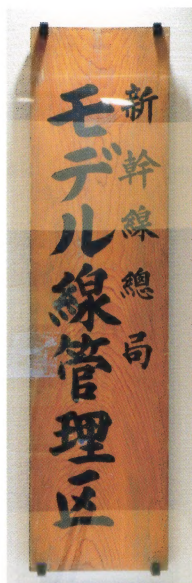 新幹線總局
モデル線管理区